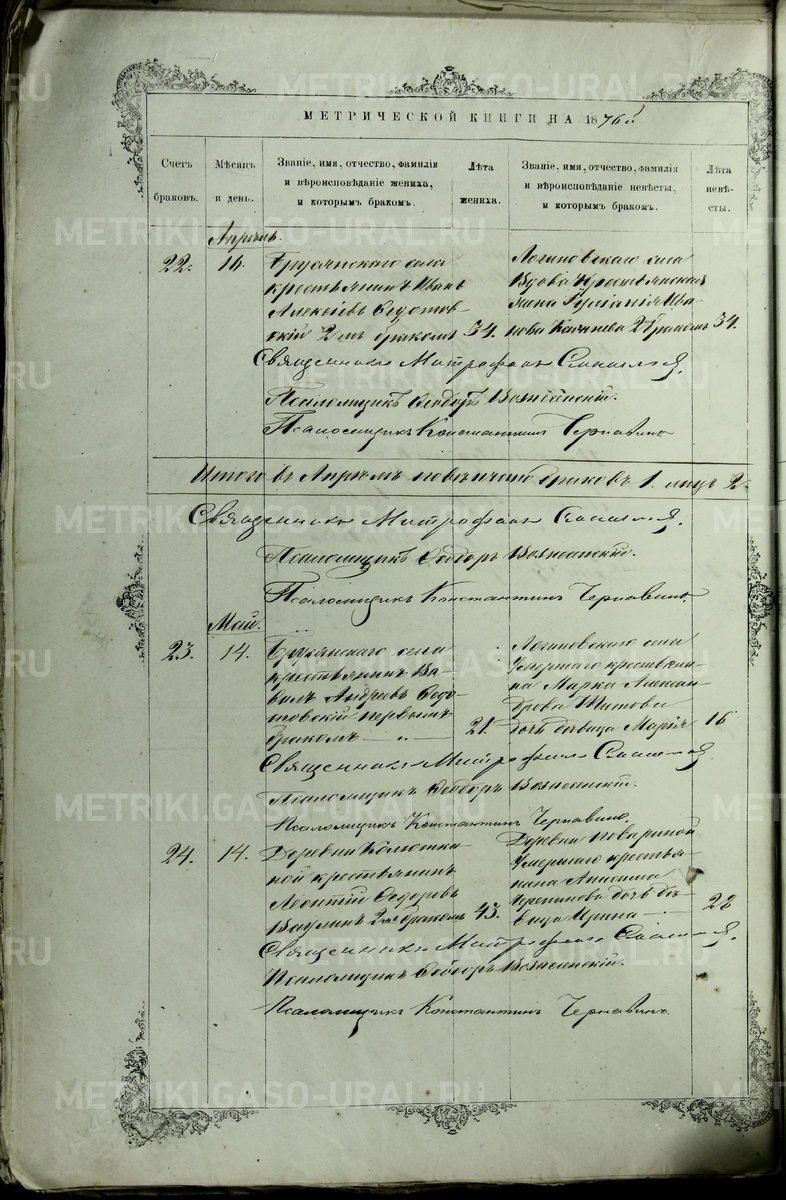 МЕТРИЧЕСКОЙ КНИГИ НА 1876й
Счетъ браковъ.
Мѣсяцъ и день.
Званіе, имя, отчество, фамилія и вѣроисповѣданіе жениха, и которымъ бракомъ.
Лѣта жениха.
Званіе, имя, отчество, фамилія и вѣроисповѣданіе невѣсты, и которымъ бракомъ.
Лѣта невѣсты.
Апрѣль.
22.
16.
Бруснянскаго села
крестьянинъ Иванъ
Алексѣевъ Федотов
скій 2мъ бракомъ
34.
Логиновскаго села
Вдова Крестьянская
жена Іуліанія Ива
нова 2мъ бракомъ
34.
Священникъ Митрофанъ
Псаломщикъ Ѳеодоръ Вознесенскій.
Псаломщикъ Константинъ Чернавинъ
Итого въ Апрѣлѣ повѣнчано браковъ 1. лицъ 2.
Священникъ Митрофанъ
Псаломщикъ Ѳеодоръ Вознесенскій.
Псаломщикъ Константинъ Чернавинъ.
Май.
23.
14.
села
крестьянинъ Ва
вилъ Андреевъ Федо
товскій первымъ
бракомъ
21.
Логиновскаго села
Умершаго крестьяни
на Марка Алексан
дрова Шитова
дочь дѣвица Марія
16
Священникъ Митрофанъ
Псаломщикъ Ѳеодоръ Вознесенскій.
Псаломщикъ Константинъ Чернавинъ.
24.
14.
Деревни Колютки
ной крестьянинъ
Леонтій Федоровъ
Ваулинъ 2мъ бракомъ
43.
Деревни Поварнной
Умершаго крестья
нина
дочь дѣ
вица Ирина
22
Священникъ Митрофанъ
Псаломщикъ Ѳеодоръ Вознесенскій.
Псаломщикъ Константинъ Чернавинъ.
METRIKI.GASO-URAL.RU